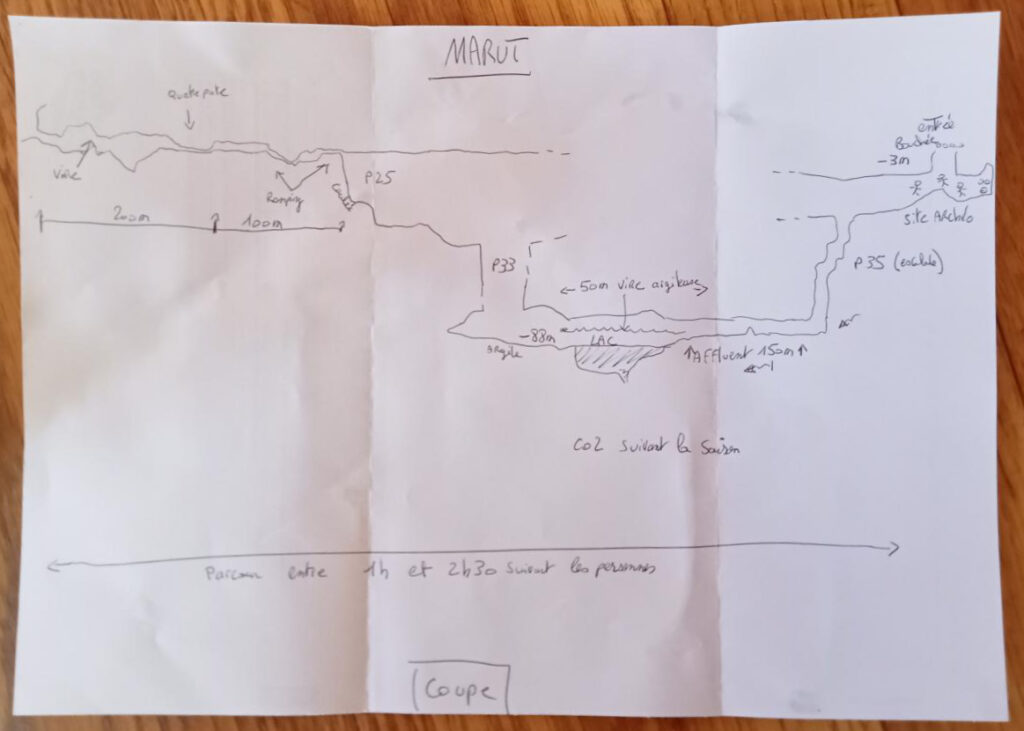 MARUT
Quatre pate
Vire
Ramping
P25
200m
100m
entrée
-3m
Site Archéo
P35 (escalade)
P33
50m vire argileuse
-88m
LAC
argile
Affluent 150m
CO2 suivant la saison
Parcour entre 1h et 2h30 suivant les personnes
Coupe